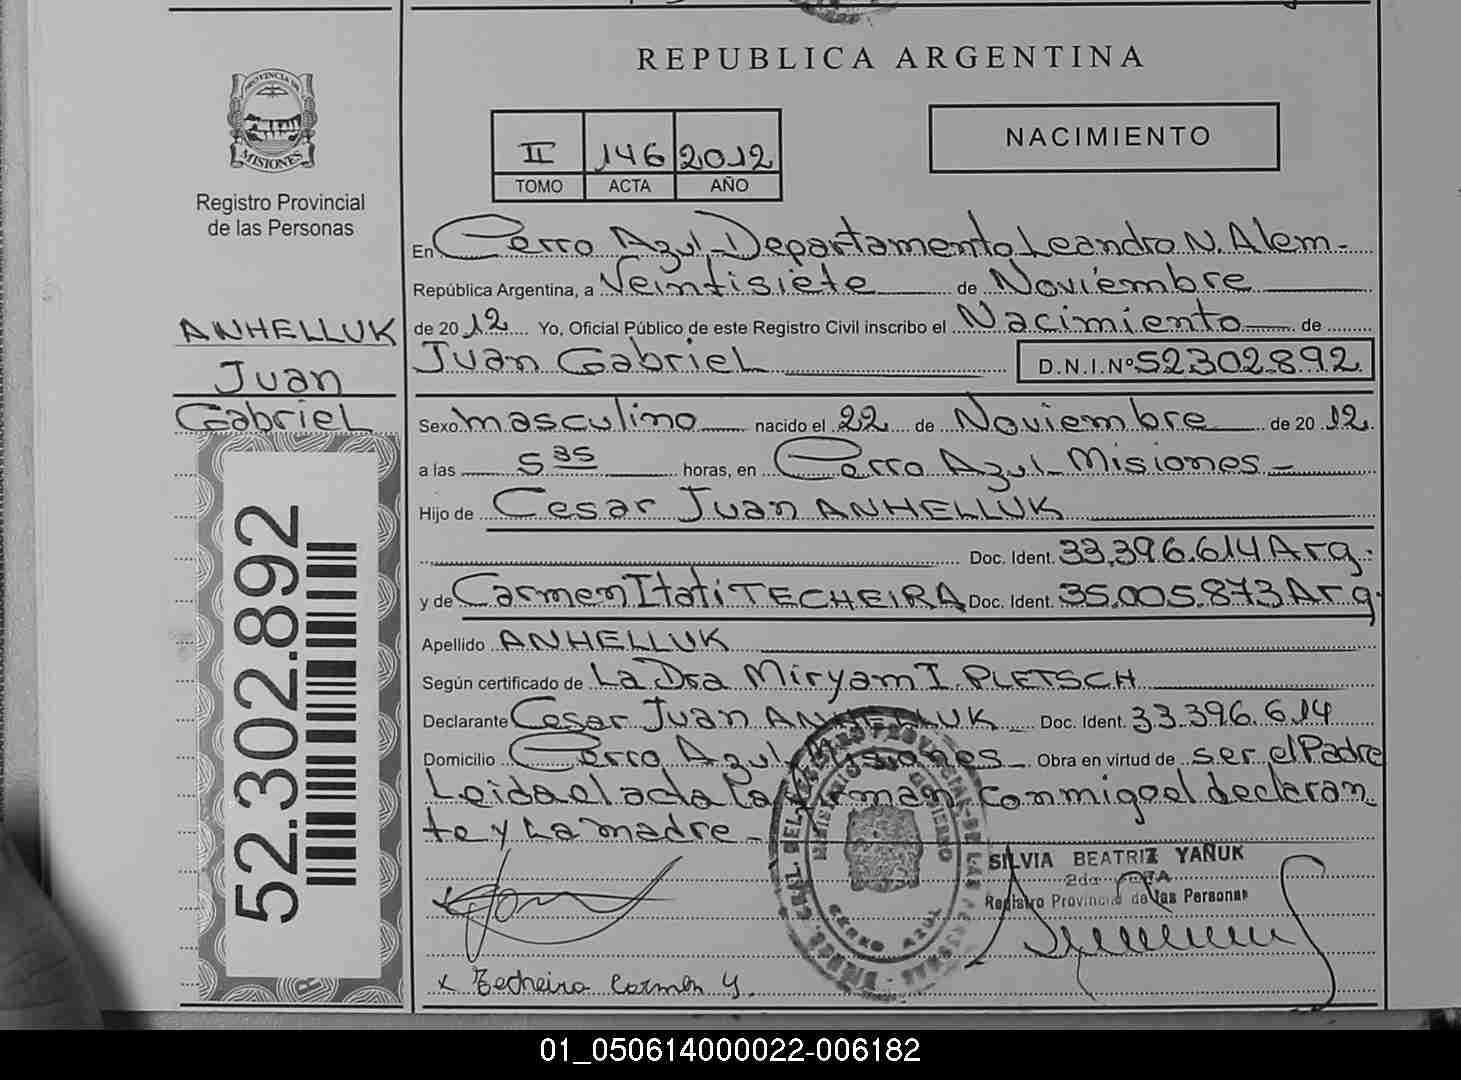 REPUBLICA ARGENTINA
PROVINCIA DE
MISIONES
Registro Provincial
de las Personas
II 146 2012
TOMO ACTA AÑO
NACIMIENTO
En Cerro Azul - Departamento Leandro N. Alem -
República Argentina, a Veintisiete de Noviembre
de 2012 Yo, Oficial Público de este Registro Civil inscribo el Nacimiento de
Juan Gabriel D.N.I.Nº 52.302.892.
ANHELLUK
Juan
Gabriel
Sexo masculino nacido el 22 de Noviembre de 2012.
a las 5 35 horas, en Cerro Azul - Misiones -
Hijo de Cesar Juan ANHELLUK
Doc. Ident. 33.396.614 Arg.
y de Carmen Itati TECHEIRA Doc. Ident. 35.005.873 Arg.
Apellido ANHELLUK
Según certificado de La Dra Miryam I. PLETSCH
Declarante Cesar Juan ANHELLUK Doc. Ident. 33.396.614
Domicilio Cerro Azul Misiones - Obra en virtud de ser el Padre
Leida el acta la firman conmigo el declaran
te y la madre -
52.302.892
MINISTERIO DE GOBIERNO
CERRO AZUL
SILVIA BEATRIZ YAÑUK
Registro Provincial de las Personas
x Techeira Carmen Y.
01_050614000022-006182